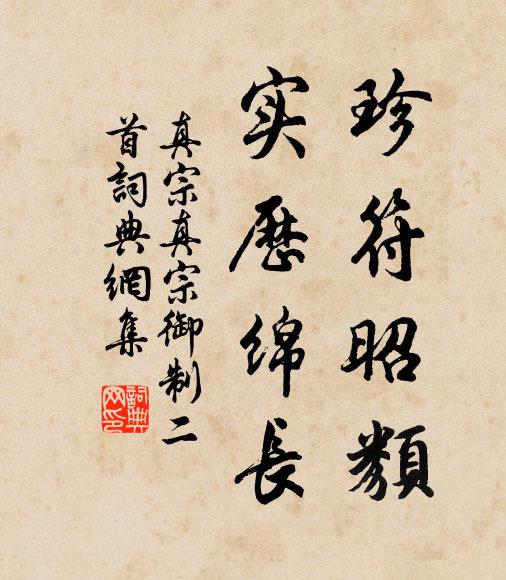 珍符昭類
实歷绵长
真宗真宗御制二
首詞典網集
詞典网印